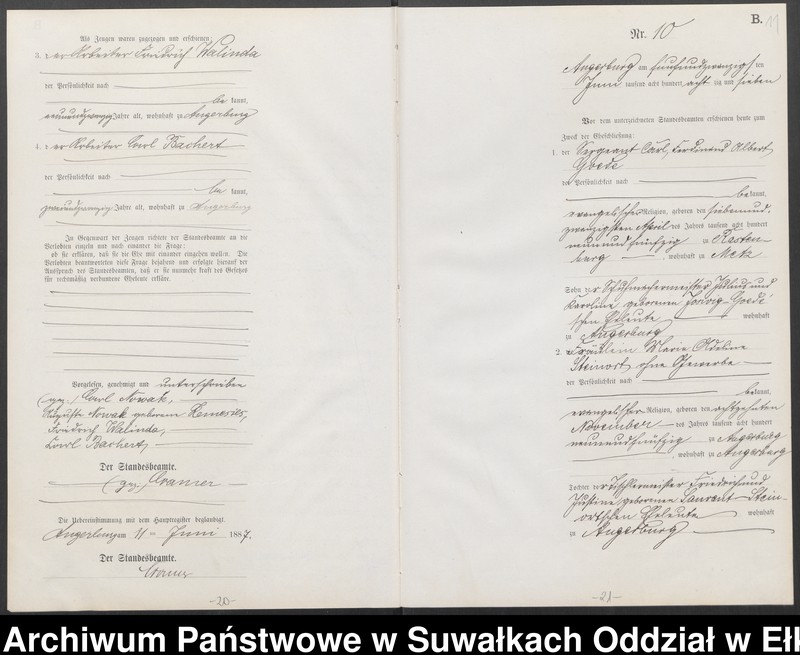 Als Zeugen waren zugezogen und erschienen:
3. der Arbeiter Friedrich Walinda
der Persönlichkeit nach
be kannt,
neunundzwanzig Jahre alt, wohnhaft zu Angerburg
4. der Arbeiter Carl Bachert
der Persönlichkeit nach
be kannt,
zweiundzwanzig Jahre alt, wohnhaft zu Angerburg
In Gegenwart der Zeugen richtete der Standesbeamte an die
Verlobten einzeln und nach einander die Frage:
ob sie erklären, daß sie die Ehe mit einander eingehen wollen. Die
Verlobten beantworteten diese Frage bejahend und erfolgte hierauf der
Ausspruch des Standesbeamten, daß er sie nunmehr kraft des Gesetzes
für rechtmäßig verbundene Eheleute erkläre.
Vorgelesen, genehmigt und unterschrieben
(gez.) Carl Nowak,
Auguste Nowak geborene
Friedrich Walinda,
Carl Bachert,
Der Standesbeamte.
(gez.) Cramer
Die Uebereinstimmung mit dem Hauptregister beglaubigt.
Angerburg am 11 ten Juni 1887.
Der Standesbeamte.
Cramer
-20-
B.
11
Nr. 10
Angerburg am fünfundzwanzigsten
Juni tausend acht hundert achtzig und sieben
Vor dem unterzeichneten Standesbeamten erschienen heute zum
Zweck der Eheschließung:
1. der Sergeant Carl, Ferdinand Albert
Goede
der Persönlichkeit nach
be kannt,
evangelischer Religion, geboren den siebenund-
zwanzigsten April des Jahres tausend acht hundert
neunundfünfzig zu Rasten-
burg, wohnhaft zu Metz
Sohn der Schuhmachermeister Julius und
Karoline geborenen Goede
schen Eheleute wohnhaft
zu Angerburg
2. Fräulein Marie Adeline
Steinort, ohne Gewerbe
der Persönlichkeit nach
be kannt,
evangelischer Religion, geboren den achtzehnten
November des Jahres tausend acht hundert
neunundfünfzig zu Angerburg
, wohnhaft zu Angerburg
Tochter der Tischlermeister Friedrich und
Justine geborenen Laurent Stein-
ortschen Eheleute wohnhaft
zu Angerburg
-21-
Archiwum Państwowe w Suwałkach Oddział w Ełk